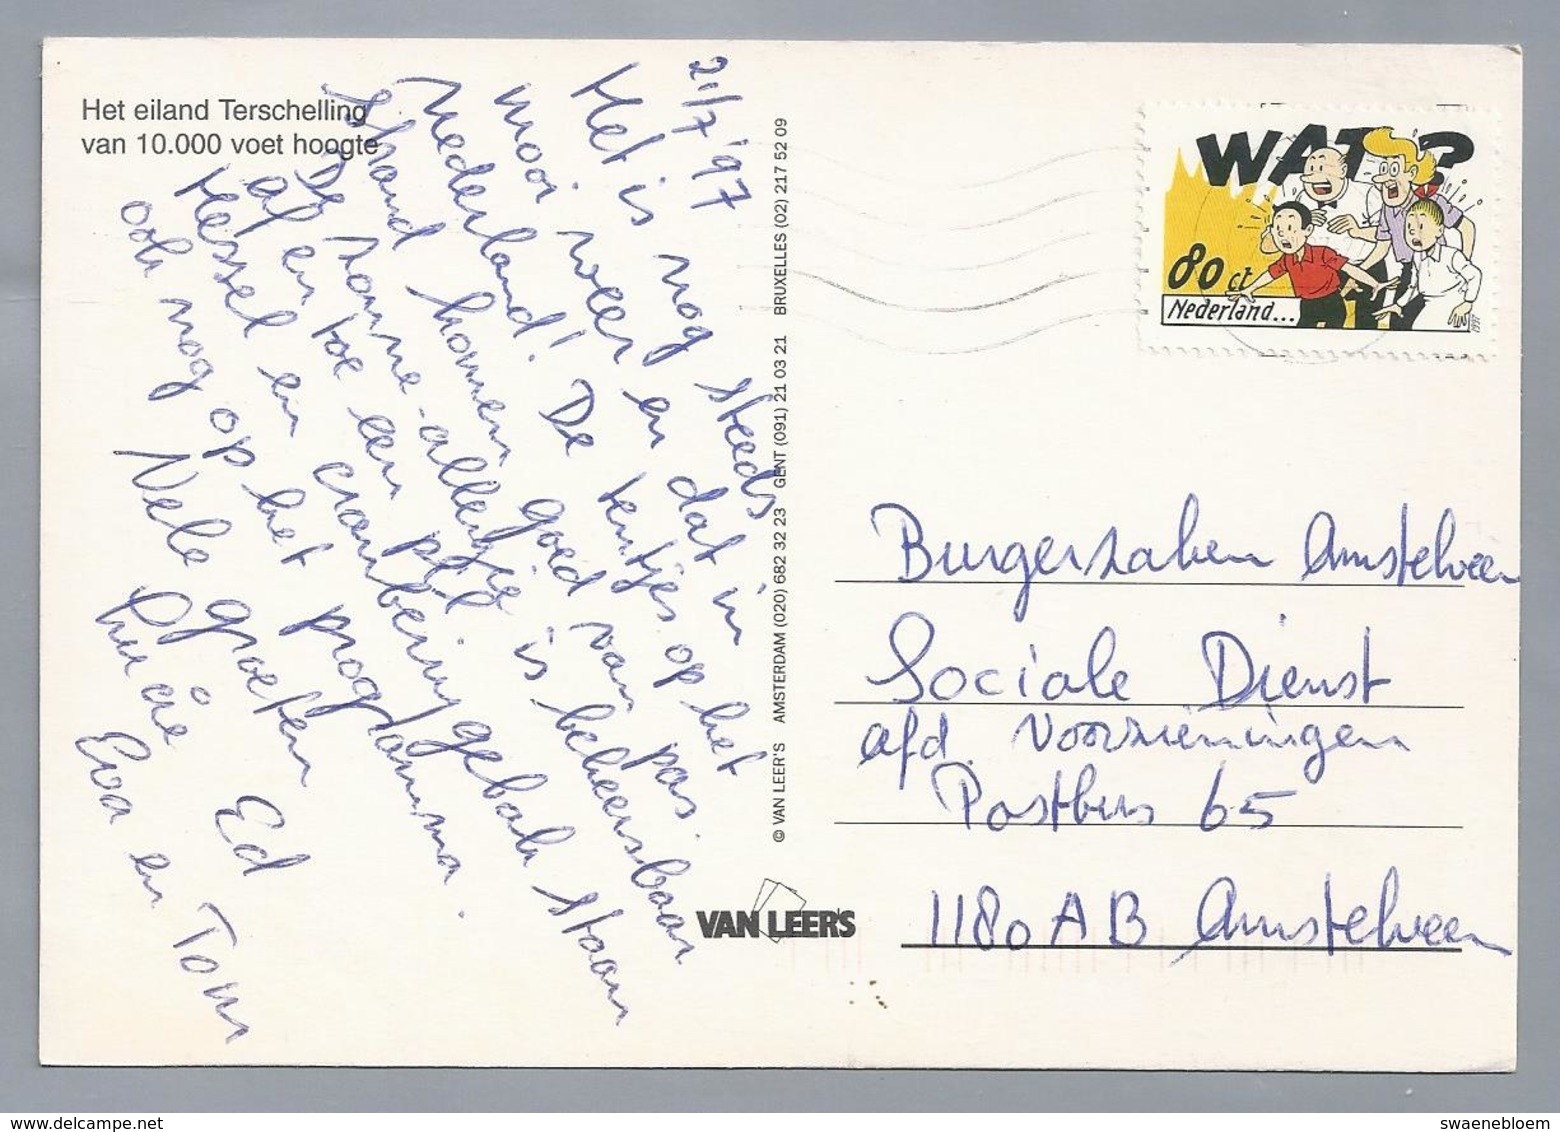 Het eiland Terschelling
van 10.000 voet hoogte
21/7 '97
Het is nog steeds
mooi weer en dat in
Nederland! De tentjes op het
strand komen goed van pas.
De zonne-allergie is beheersbaar
af en toe een pil
Hessel en cranberrygebak staan
ook nog op het programma.
Vele groeten
Lucie Ed
Eva en Tom
© VAN LEER'S AMSTERDAM (020) 682 32 23 GENT (091) 21 03 21 BRUXELLES (02) 217 52 09
VAN LEER'S
WAT?
80 ct
Nederland...
1997
Burgerzaken Amstelveen
Sociale Dienst
afd. Voorzieningen
Postbus 65
1180 AB Amstelveen
www.delcampe.net
swaenebloem